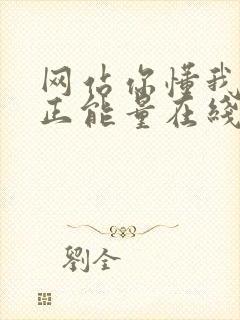 网站你懂我
正能量在线
劉全